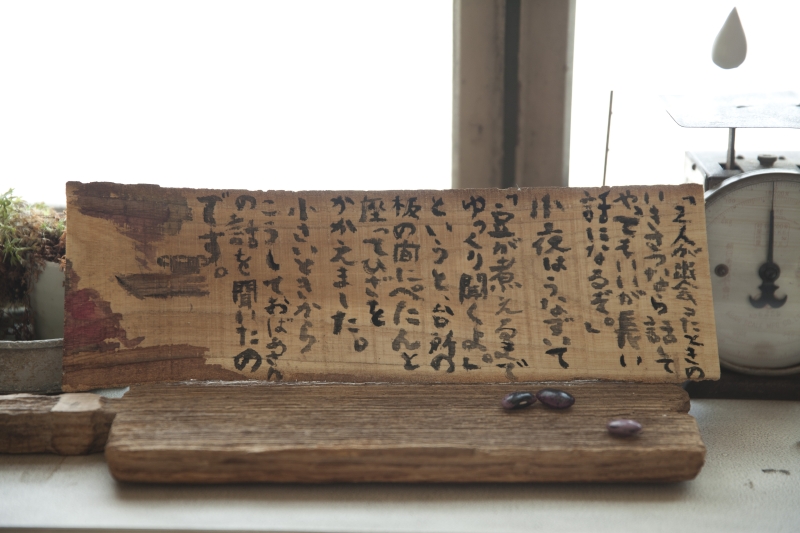 「2人が出会ったときの
いきさつなら話して
やってもいいが長い
話になるぞ。」
小夜はうなずいて
「豆が煮えるまで
ゆっくり聞くよ。」
というと、台所の
板の間にぺたんと
座ってひざを
かかえました。
小さいときから
こうしておばあさん
の話を聞いたの
です。